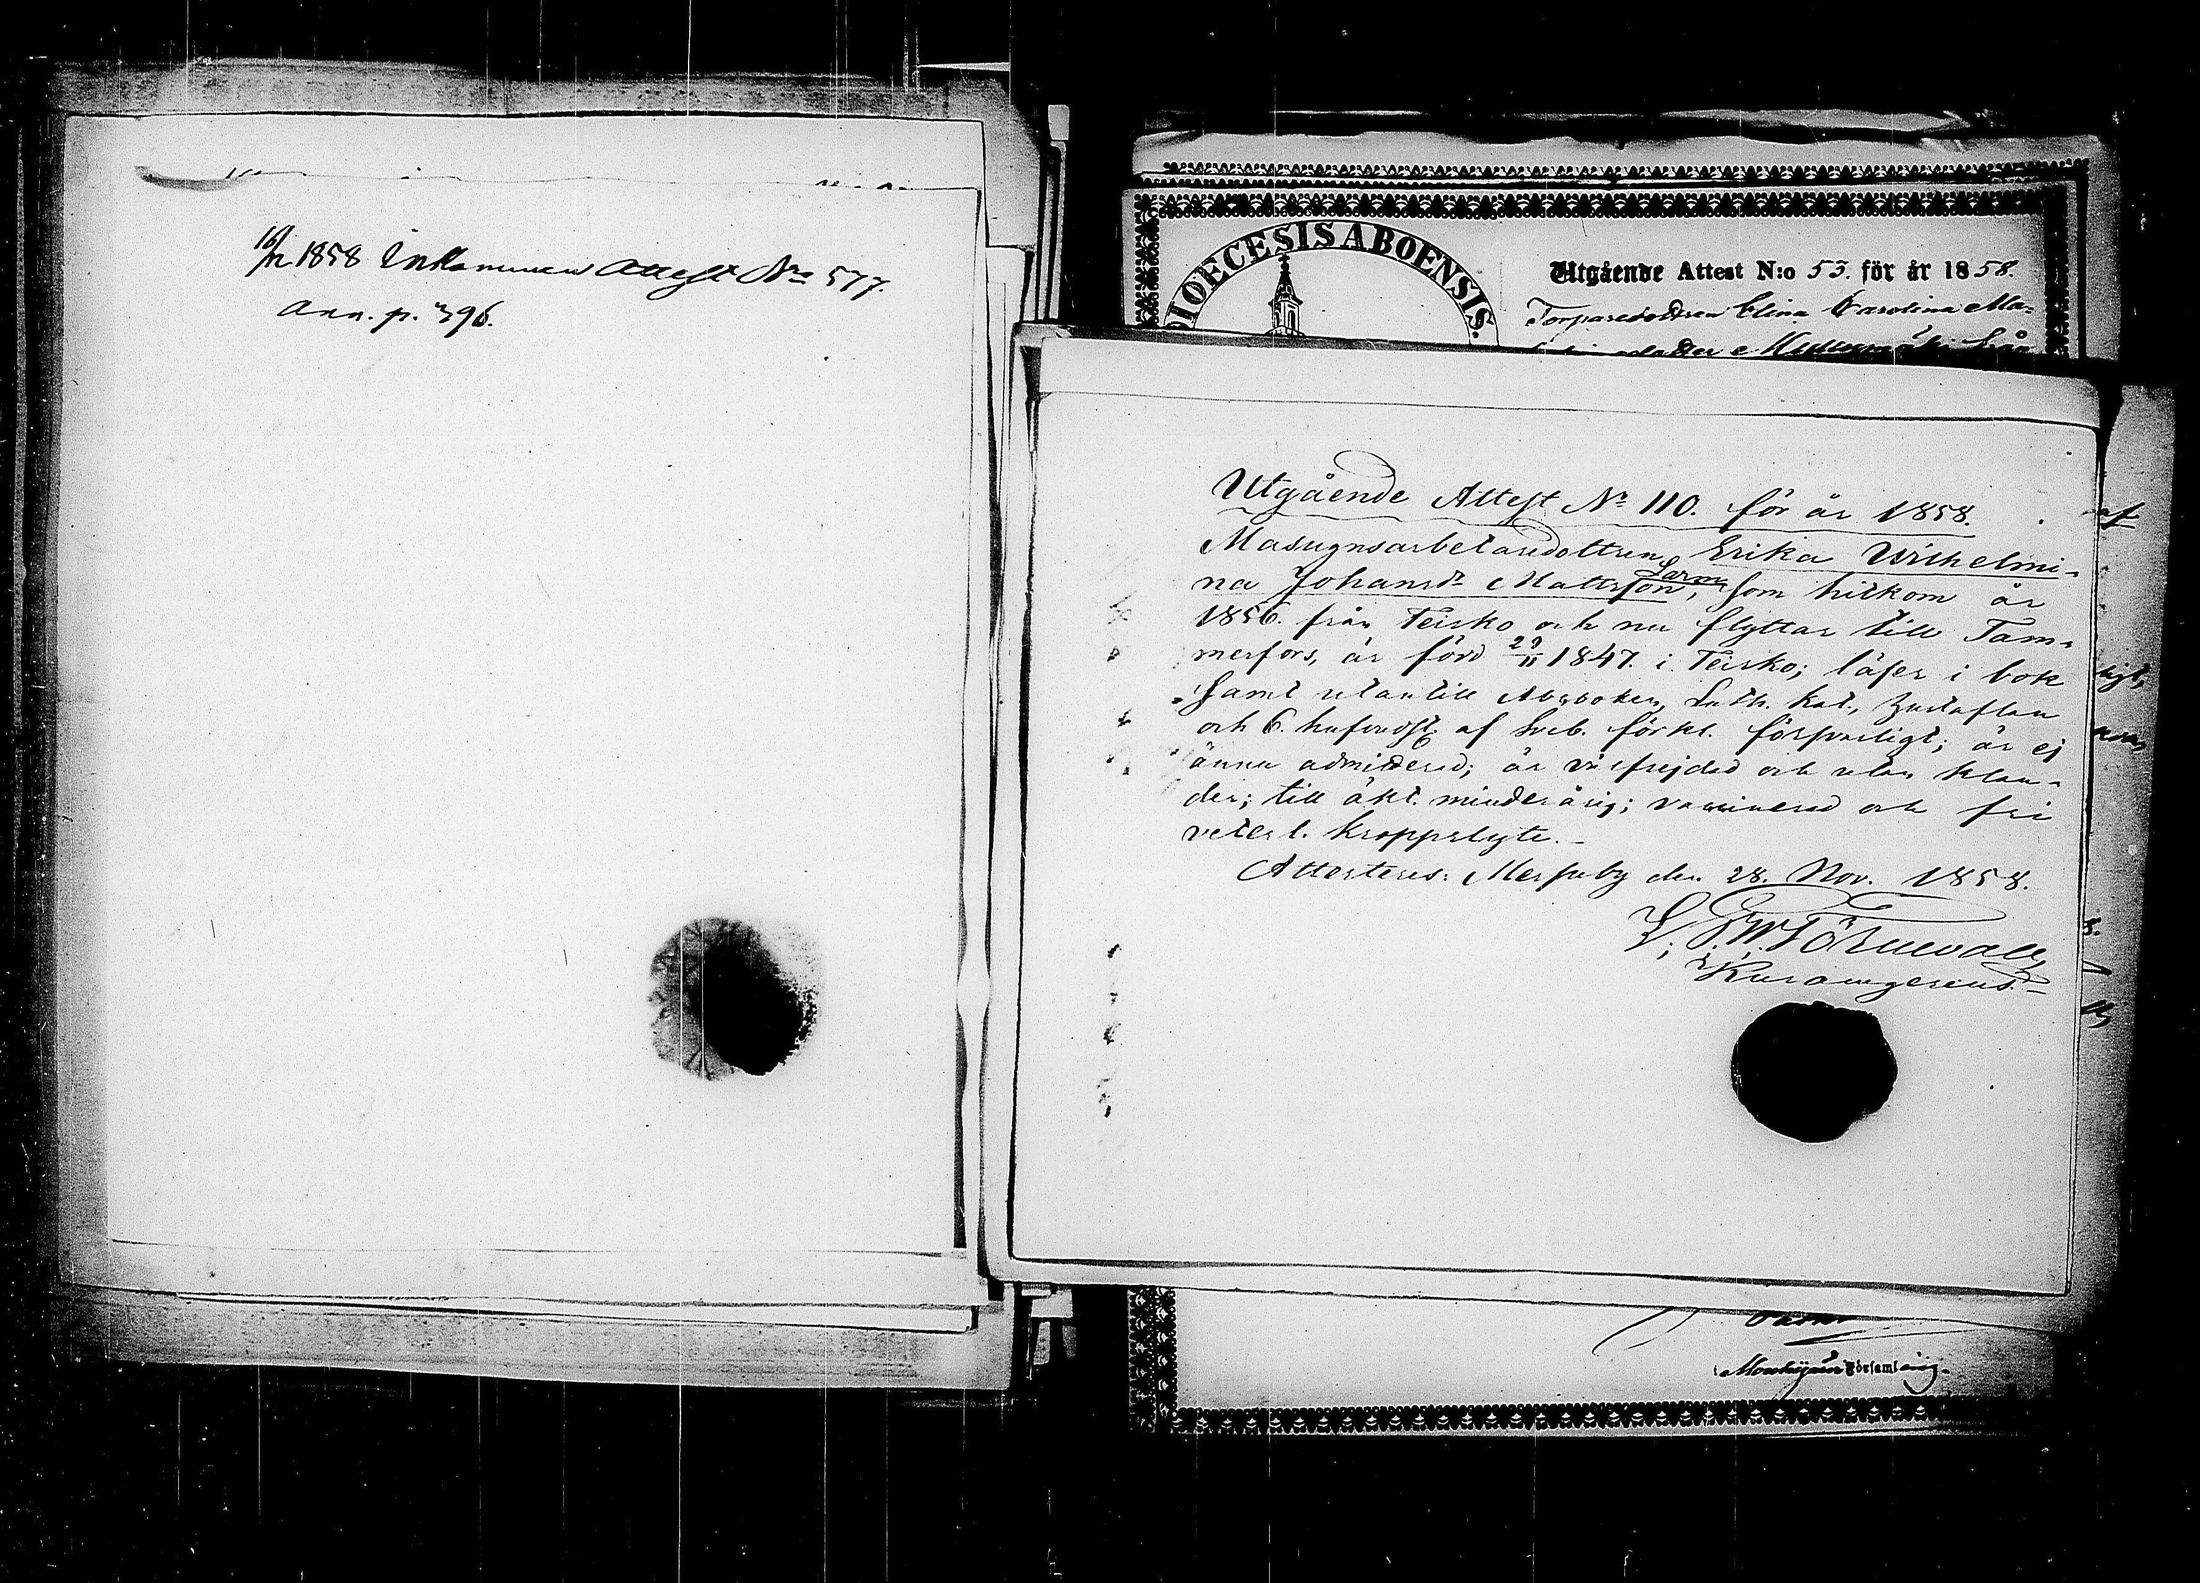 16/12 1858 Inkommen Attest No 577.
Ann. p. 396.
DIOECESIS ABOENSIS.
Utgående Attest N:o 53. för år 1858.
Torparedottren Elina Carolina Ma-
Utgående Attest No 110. för år 1858.
Masugnsarbetaredottren Erika Wilhelmi-
na Johansdr Mattsson, Larm som hitkom år
1856. från Teisko och nu flyttar till Tam-
merfors, är född 29/11 1847. i Teisko; läser i bok
samt utantill Abcboken, Luth. kat., hustaflan
och 6. hufvudst. af Sveb. förkl. försvarligt; är ej
ännu admitterad; är välfrejdad och utan klan-
der; till äkt. minderårig; vaccinerad och fri
veterl. kroppslyte.
Attesteras: Messuby den 28. Nov. 1858.
Törnevall
af
ligt,
Församling.